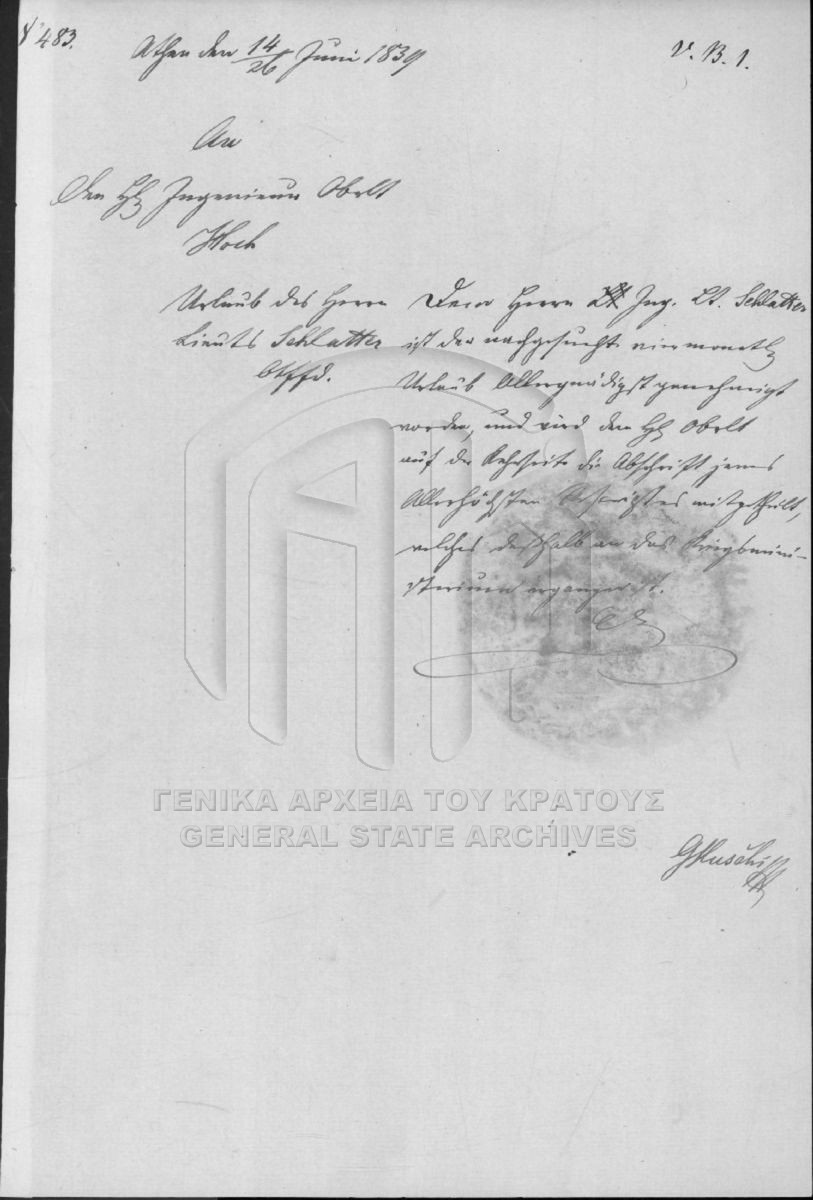 № 483.
Athen den 14/26 Juni 1839
V. B. 1.
An
Den H Ingenieur Obrlt
Hoch
Urlaub des Herrn
Lieuts Schlatter
btffd.
Dem Herrn Ing. Lt. Schlatter
ist der nachgesuchte viermonatl
Urlaub Allergnädigst genehmigt
worden, und wird dem H Obrlt
auf der Rehrseite die Abschrift jenes
Allerhöchsten Rescriptes mitgetheilt,
welches deßhalb an das Kriegsmini-
sterium ergangen ist.
ΓΕΝΙΚΑ ΑΡΧΕΙΑ ΤΟΥ ΚΡΑΤΟΥΣ
GENERAL STATE ARCHIVES